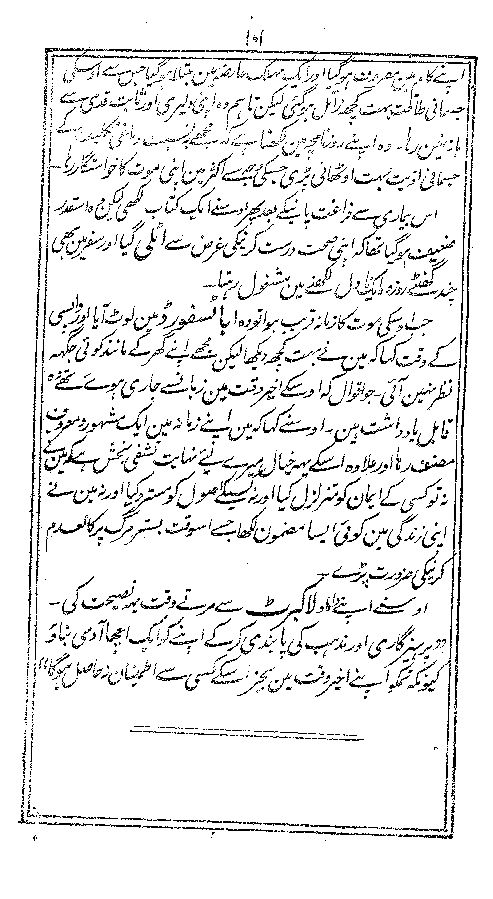 ۱۵۱
اپنے کام مین مصروف ہوگیا اور ایک مہلک عارضہ مین مبتلا ہوگیا جس سے اوسکی
جسمانی طاقت بہت کچھ زائل ہوگئی لیکن تاہم وہ اوسی دلیری اور ثابت قدمی سے
باز نہین رہا۔ وہ اپنے روزنامچہ مین لکھتا ہے کہ مجھے بہ نسبت روحانی تکلیف کے
جسمانی اذیت بہت اوٹھانی پڑی جسکی وجہ سے اکثر مین اپنی موت کا خواستگار رہا۔
اس بیماری سے فراغت پانیکے بعد پھر اوسنے ایک کتاب لکھی لیکن وہ اسقدر
ضعیف ہوگیا تھا کہ اپنی صحت درست کرنیکی غرض سے اٹلی گیا اور سفر مین بھی
چند گھنٹے روزہ ایک ناول لکھنے مین مشغول رہتا۔
جب اوسکی موت کا زمانہ قریب ہوا تو وہ ابابٹسفورڈ مین لوٹ آیا اور واپسی
کے وقت کہا کہ مین نے بہت کچھ دیکھا لیکن مجھے اپنے گھر کے مانند کوئی جگہہ
نظر نہین آئی۔ جو اقوال کہ اوسکے اخیر وقت مین زبان سے جاری ہوے تھے وہ
قابل یادداشت ہین۔ اوسنے کہا کہ مین اپنے زمانہ مین ایک مشہور و معروف
مصنف رہا اور علاوہ اسکے یہہ خیال میرے لئے نہایت تشفی بخش ہے کہ مین نے
نہ تو کسی کے ایمان کو متزلزل کیا اور نہ کسیکے اصول کو مسترد کیا اور نہ مین نے
اپنی زندگی مین کوئی ایسا مضمون لکھا جسے اسوقت بستر مرگ پر کالعدم
کرنیکی ضرورت پڑے۔
اوسنے اپنے داماد لاکہرٹ سے مرنے وقت یہہ نصیحت کی۔
”پرہیزگاری اور مذہب کی پابندی کرکے اپنے کو ایک اچھا آدمی بناؤ
کیونکہ تمکو اپنے اخیر وقت مین بجز اسکے کسی سے اطمینان نہ حاصل ہوگا“